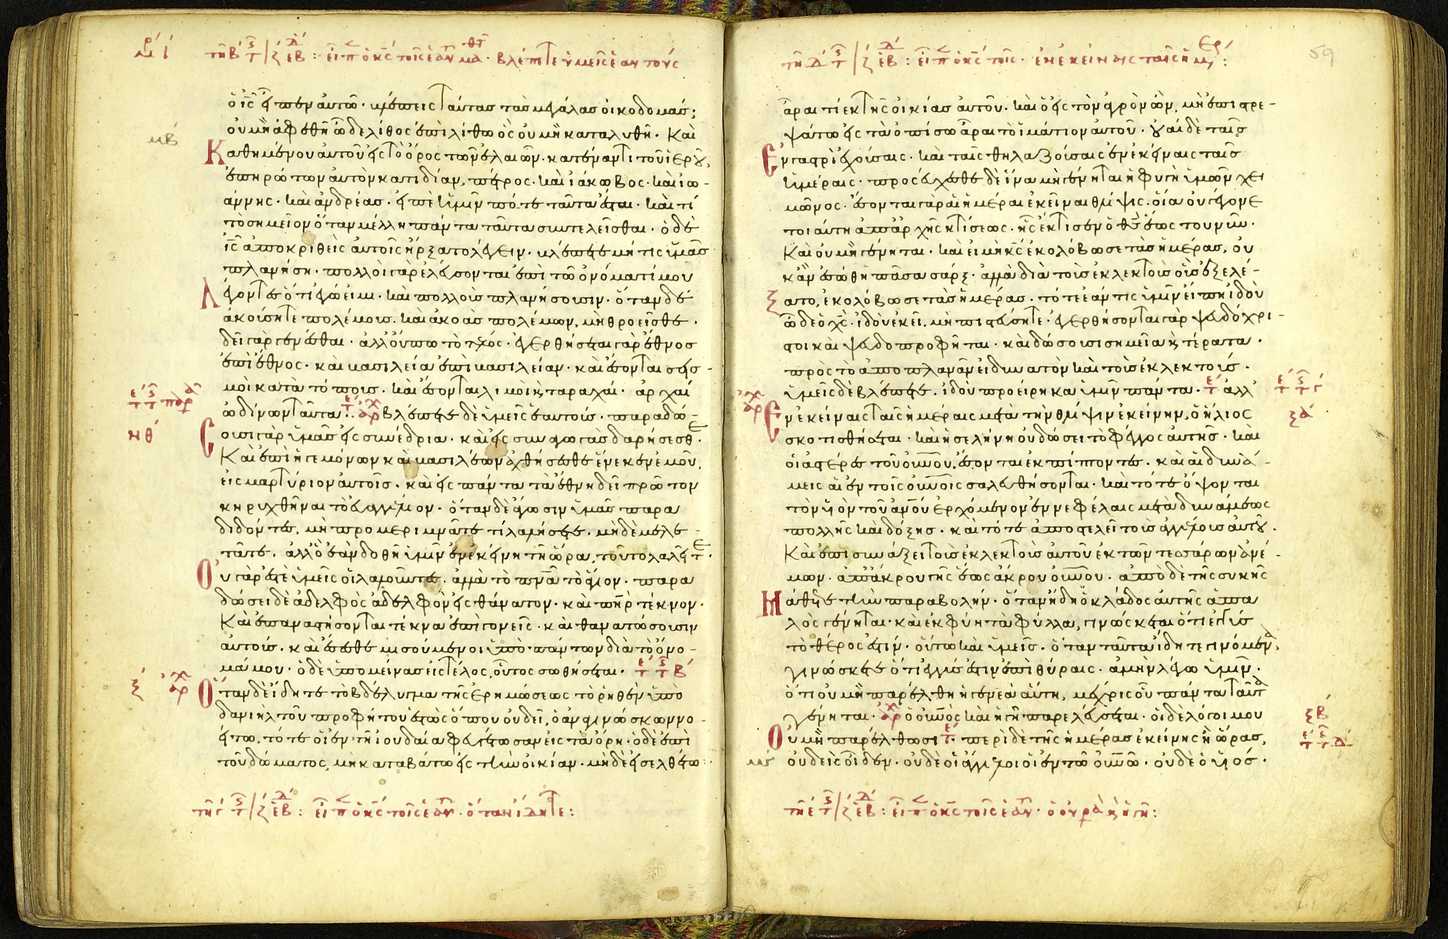 ὁ ἰς εἶπεν αὐτῶ· βλέπεις ταύτας τὰς μεγάλας οἰκοδομάς;
οὐ μὴ ἀφεθῆ ὧδε λίθος ἐπὶ λίθω ὃς οὐ μὴ καταλυθῆ· Καὶ
Καθημένου αὐτοῦ εἰς τὸ ὄρος τῶν ἐλαιῶν· κατέναντι τοῦ ἱεροῦ,
ἐπηρώτων αὐτὸν κατιδίαν, πέτρος· καὶ ἰάκωβος· καὶ ἰω-
άννης· καὶ ἀνδρέας· εἰπὲ ἡμῖν πότε ταῦτα ἔσται· καὶ τί
τὸ σημεῖον ὅταν μέλλη πάντα ταῦτα συντελεῖσθαι· ὁ δὲ
ἰς ἀποκριθεὶς αὐτοῖς ἤρξατο λέγειν· βλέπετε μή τις ὑμᾶς
πλανήση· πολλοὶ γὰρ ἐλεύσονται ἐπὶ τῶ ὀνόματί μου
λέγοντες ὅτι ἐγώ εἰμι· καὶ πολλοὺς πλανήσουσιν· ὅταν δὲ
ἀκούσητε πολέμους καὶ ἀκοὰς πολέμων, μὴ θροεῖσθε·
δεῖ γὰρ γενέσθαι· ἀλλ' οὔπω τὸ τέλος· ἐγερθήσεται γὰρ ἔθνος
ἐπὶ ἔθνος· καὶ βασιλεία ἐπὶ βασιλείαν· καὶ ἔσονται σεισ-
μοὶ κατὰ τόπους· καὶ ἔσονται λιμοὶ καὶ ταραχαί· ἀρχαὶ
ὠδίνων ταῦτα· βλέπετε δὲ ὑμεῖς ἑαυτούς· παραδώ-
σουσι γὰρ ὑμᾶς εἰς συνέδρια· καὶ εἰς συναγωγὰς δαρήσεσθε·
Καὶ ἐπὶ ἡγεμόνων καὶ βασιλέων ἀχθήσεσθε ἕνεκεν ἐμοῦ,
εἰς μαρτύριον αὐτοῖς· καὶ εἰς πάντα τὰ ἔθνη δεῖ πρῶτον
κηρυχθῆναι τὸ εὐαγγέλιον· ὅταν δὲ ἄγωσιν ὑμᾶς παρα
διδόντες, μὴ προμεριμνᾶτε τί λαλήσετε· μηδὲ μελε-
τᾶτε· ἀλλ' ὃ ἐὰν δοθῆ ὑμῖν ἐν ἐκείνη τῆ ὥρα, τοῦτο λαλεῖτε·
Οὐ γάρ ἐστε ὑμεῖς οἱ λαλοῦντες· ἀλλὰ τὸ πνα τὸ ἅγιον· παρα
δώσει δὲ ἀδελφὸς ἀδελφὸν εἰς θάνατον· καὶ πηρ τέκνον·
Καὶ ἐπαναστήσονται τέκνα ἐπὶ γονεῖς· καὶ θανατώσουσιν
αὐτούς· καὶ ἔσεσθε μισούμενοι ὑπὸ πάντων διὰ τὸ ὄνο-
μά μου· ὁ δὲ ὑπομείνας εἰς τέλος, οὗτος σωθήσεται·
Ὅταν δὲ ἴδητε τὸ βδέλυγμα τῆς ἐρημώσεως τὸ ῥηθὲν ὑπὸ
δανιὴλ τοῦ προφήτου ἑστὼς ὅπου οὐ δεῖ, ὁ ἀναγινώσκων νο-
είτω, τότε οἱ ἐν τῆ ἰουδαία φευγέτωσαν εἰς τὰ ὄρη· ὁ δὲ ἐπὶ
τοῦ δώματος, μὴ καταβάτω εἰς τὴν οἰκίαν· μηδὲ εἰσελθέτω
ἆραι τι ἐκ τῆς οἰκίας αὐτοῦ· καὶ ὁ εἰς τὸν ἀγρὸν ὤν, μὴ ἐπιστρε-
ψάτω εἰς τὰ ὀπίσω ἆραι τὸ ἱμάτιον αὐτοῦ· οὐαὶ δὲ ταῖς
ἐν γαστρὶ ἐχούσαις· καὶ ταῖς θηλαζούσαις ἐν ἐκείναις ταῖς
ἡμέραις· προσεύχεσθε δὲ ἵνα μὴ γένηται ἡ φυγὴ ὑμῶν χει
μῶνος· ἔσονται γὰρ αἱ ἡμέραι ἐκεῖναι θλίψις· οἵα οὐ γέγονε
τοιαύτη ἀπ' ἀρχῆς κτίσεως· ἧς ἔκτισεν ὁ θς ἕως τοῦ νῦν·
Καὶ οὐ μὴ γένηται· καὶ εἰ μὴ κς ἐκολόβωσε τὰς ἡμέρας, οὐ
κ ἂν ἐσώθη πᾶσα σάρξ· ἀλλὰ διὰ τοὺς ἐκλεκτοὺς οὓς ἐξελέ-
ξατο, ἐκολόβωσε τὰς ἡμέρας· τότε ἐάν τις ὑμῖν εἴπη ἰδοὺ
ὧδε ὁ χς· ἰδοὺ ἐκεῖ, μὴ πιστεύσητε· ἐγερθήσονται γὰρ ψευδόχρι-
στοι καὶ ψευδοπροφῆται· καὶ δώσουσι σημεῖα καὶ τέρατα·
πρὸς τὸ ἀποπλανᾶν εἰ δυνατὸν καὶ τοὺς ἐκλεκτούς·
ὑμεῖς δὲ βλέπετε· ἰδοὺ προείρηκα ὑμῖν πάντα· ἀλλ'
ἐν ἐκείναις ταῖς ἡμέραις μετὰ τὴν θλίψιν ἐκείνην, ὁ ἥλιος
σκοτισθήσεται· καὶ ἡ σελήνη οὐ δώσει τὸ φέγγος αὐτῆς· καὶ
οἱ ἀστέρες τοῦ οὐνοῦ, ἔσονται ἐκπίπτοντες· καὶ αἱ δυνά-
μεις αἱ ἐν τοῖς οὐνοῖς σαλευθήσονται· καὶ τότε ὄψονται
τὸν υἱὸν τοῦ ἀνου ἐρχόμενον ἐν νεφέλαις μετὰ δυνάμεως
πολλῆς καὶ δόξης· καὶ τότε ἀποστελεῖ τοὺς ἀγγέλους αὐτοῦ·
Καὶ ἐπισυνάξει τοὺς ἐκλεκτοὺς αὐτοῦ ἐκ τῶν τεσσάρων ἀνέ-
μων· ἀπ' ἄκρου γῆς ἕως ἄκρου οὐνου· ἀπὸ δὲ τῆς συκῆς
μάθετε τὴν παραβολήν· ὅταν ἤδη ὁ κλάδος αὐτῆς ἁπα
λὸς γένηται· καὶ ἐκφύη τὰ φύλλα, γινώσκεται ὅτι ἐγγὺς
τὸ θέρος ἐστίν· οὕτω καὶ ὑμεῖς· ὅταν ταῦτα ἴδητε γινόμενα,
γινώσκετε ὅτι ἐγγύς ἐστιν ἐπὶ θύραις· ἀμὴν λέγω ὑμῖν·
ὅτι οὐ μὴ παρέλθη ἡ γενεὰ αὕτη, μέχρις οὗ πάντα ταῦτα
γένηται· ὁ οὐνος καὶ ἡ γῆ παρελεύσεται· οἱ δὲ λόγοι μου
Οὐ μὴ παρέλθωσι· περὶ δὲ τῆς ἡμέρας ἐκείνης ἢ ὥρας,
οὐδεὶς οἶδεν· οὐδὲ οἱ ἄγγελοι οἱ ἐν τῶ οὐνω· οὐδὲ ὁ υἱός·